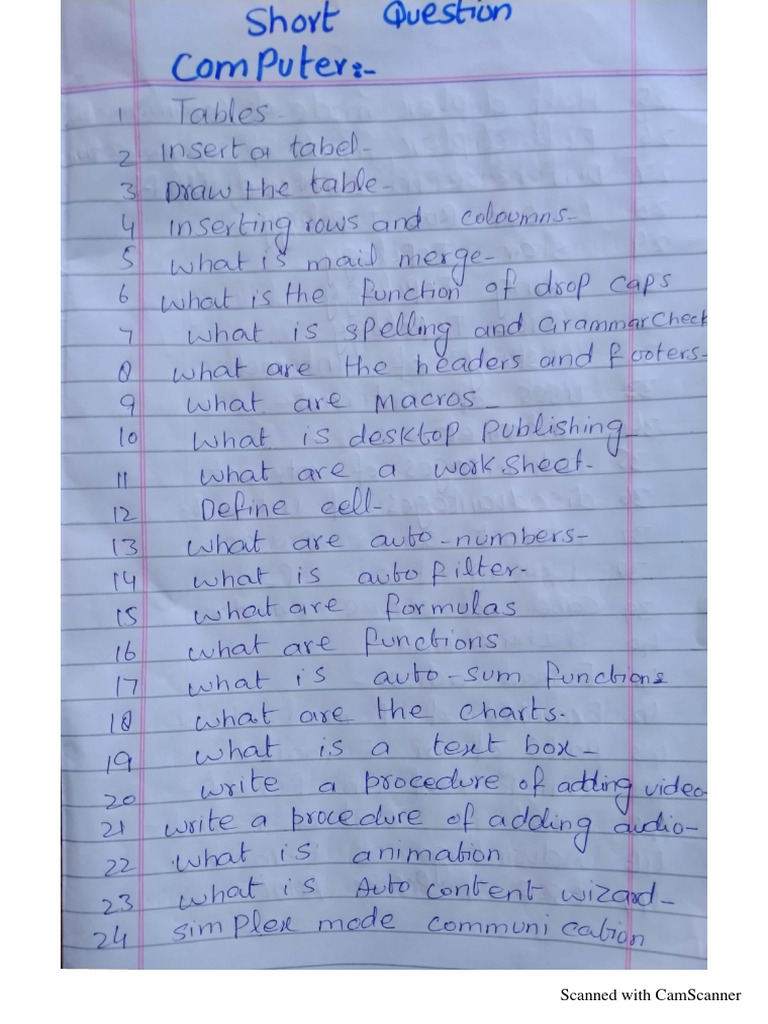 Short Question
Computer:-
1 Tables-
2 insert a tabel-
3 Draw the table-
4 inserting rows and coloumns-
5 what is mail merge-
6 what is the function of drop caps
7 what is spelling and Grammar Check
8 what are the headers and footers-
9 what are Macros-
10 what is desktop publishing-
11 what are a work sheet-
12 Define cell-
13 what are auto-numbers-
14 what is auto filter-
15 what are formulas
16 what are functions
17 what is auto-sum functions
18 what are the charts.
19 what is a text box-
20 write a procedure of adding video-
21 write a procedure of adding audio-
22 what is animation
23 what is Auto content wizard-
24 simplex mode communication
Scanned with CamScanner